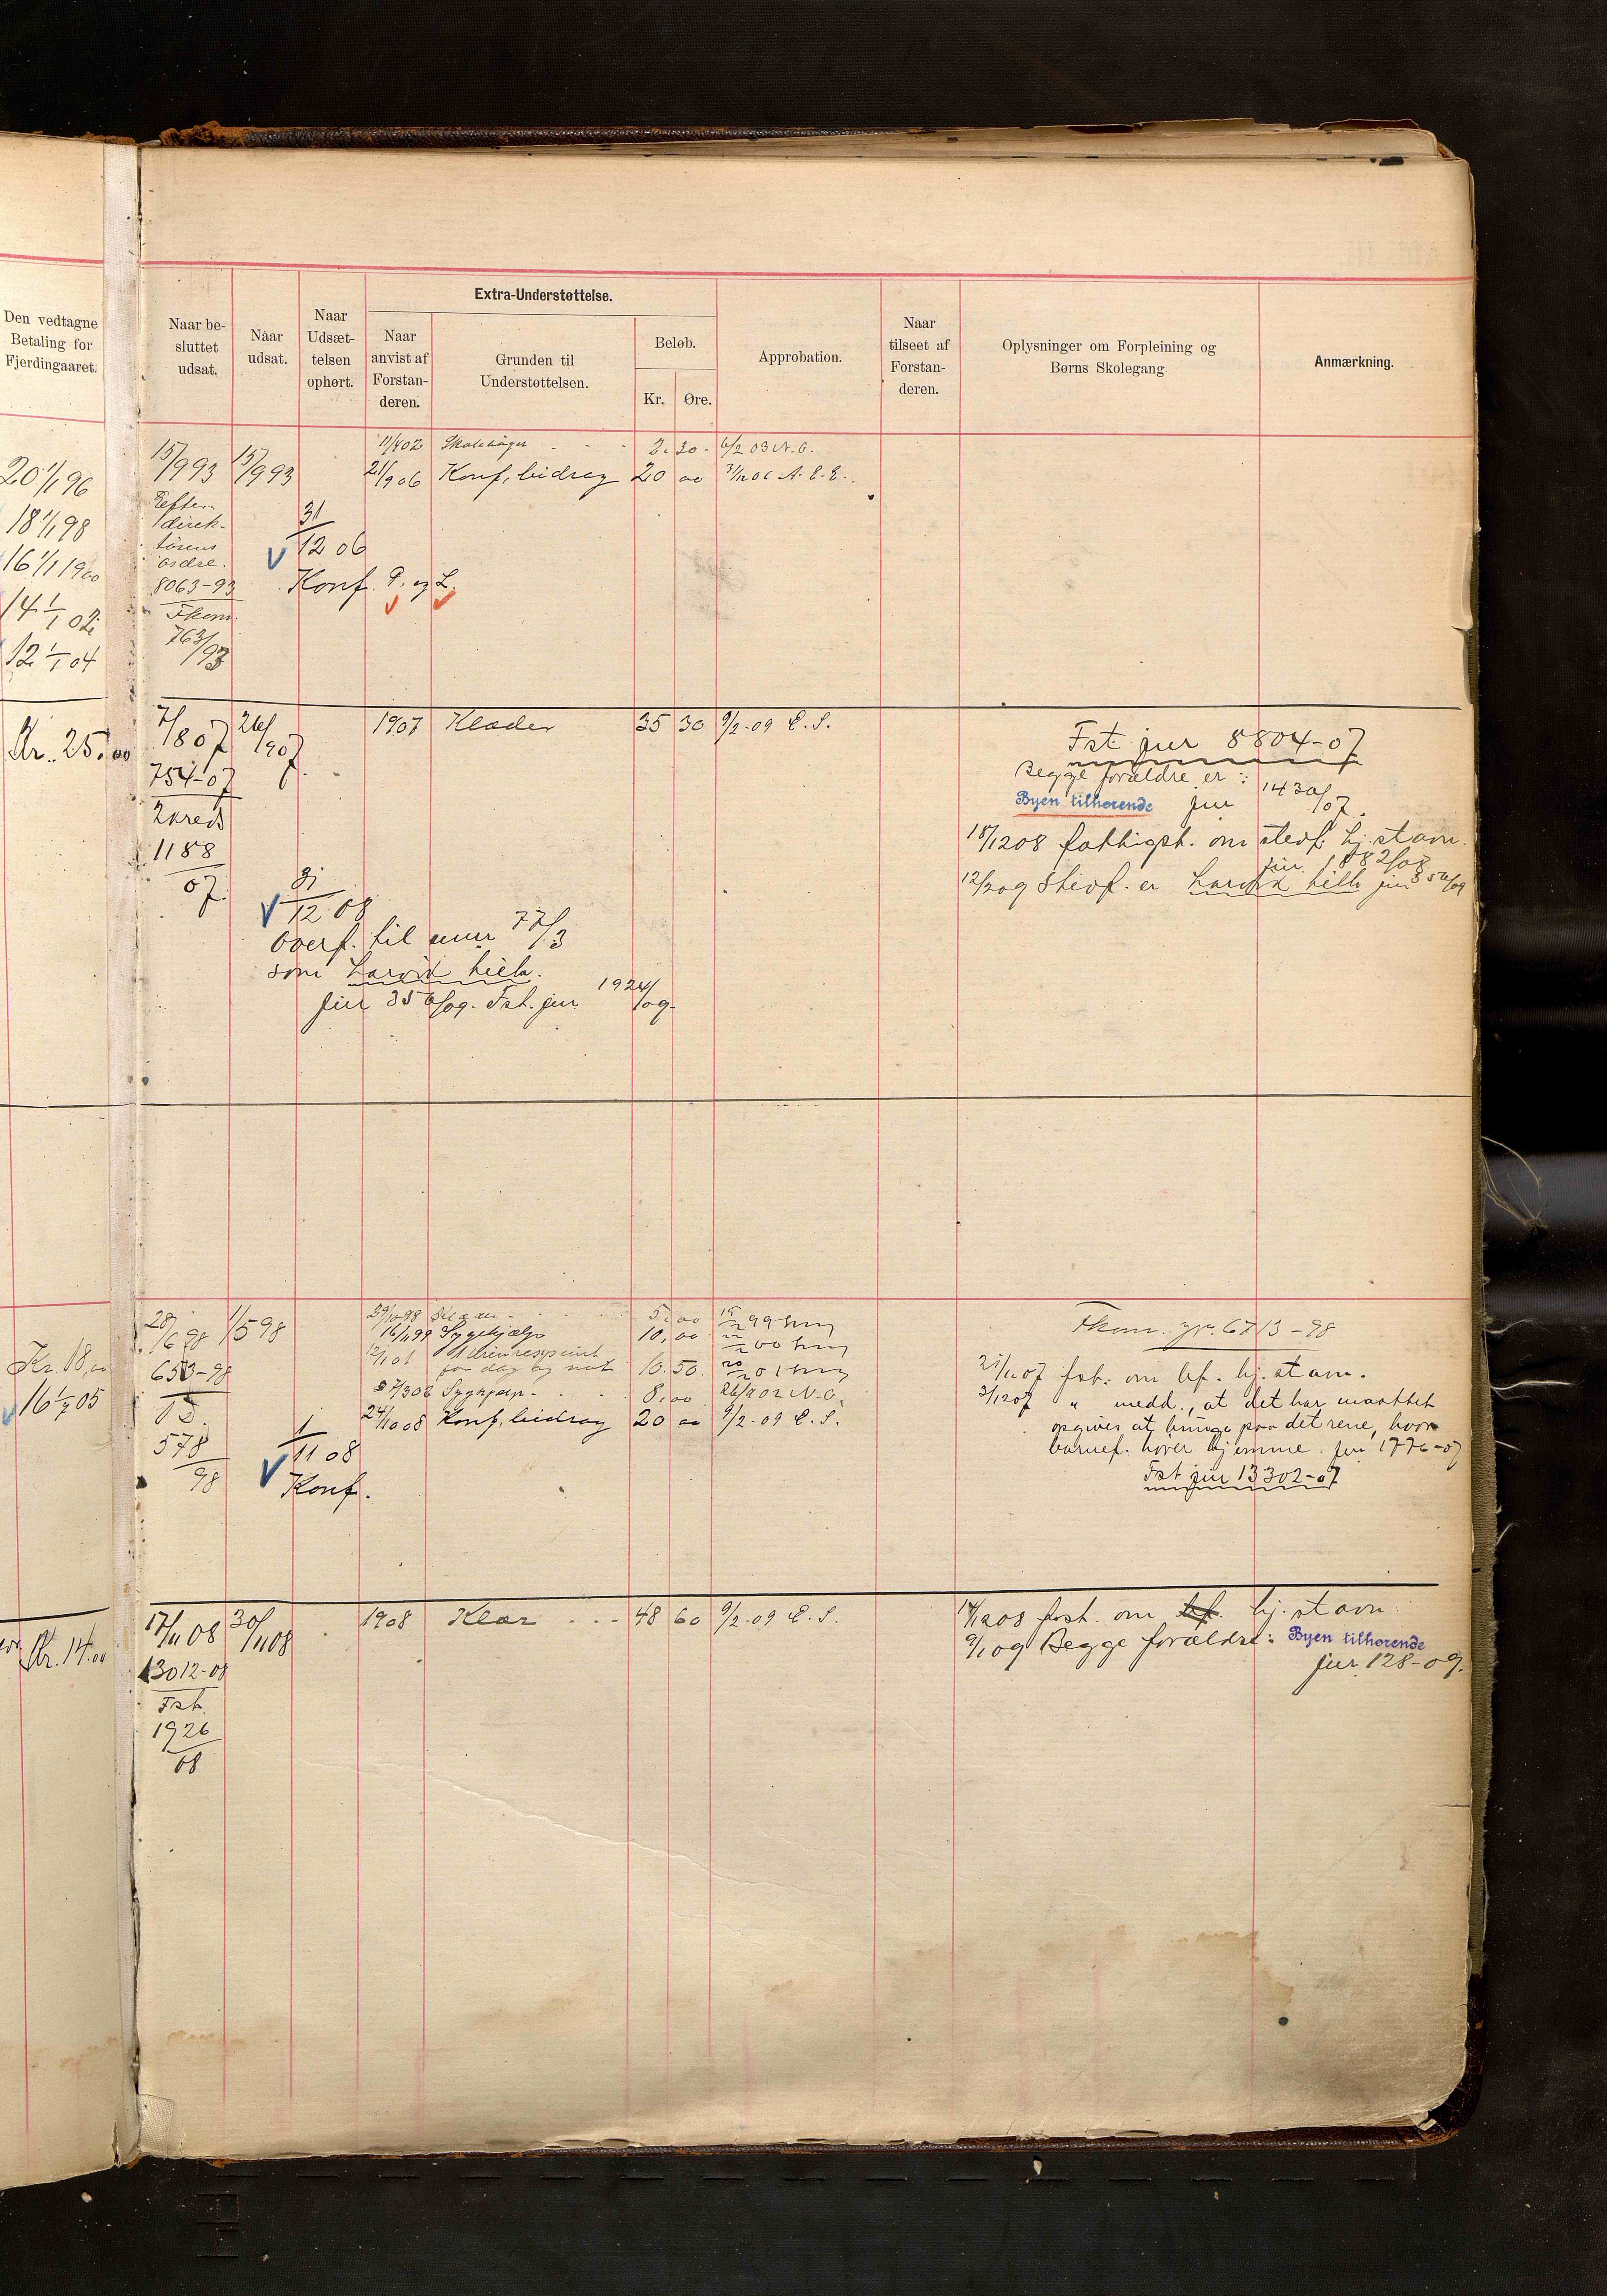 Den vedtagne
Betaling for
Fjerdingaaret.
Naar be-
sluttet
udsat.
Naar
udsat.
Naar
Udsæt-
telsen
ophørt.
Extra-Understøttelse.
Naar
anvist af
Forstan-
deren.
Grunden til
Understøttelsen.
Beløb.
Kr.
Øre.
Approbation.
Naar
tilseet af
Forstan-
deren.
Oplysninger om Forpleining og
Børns Skolegang
Anmærkning.
20 1/1 96
18 1/1 98
16 1/1 1900
14 1/1 02
12 1/1 04
15/9 93
15/9 93
Efter
direk-
tørens
ordre.
8063-93
Fkom.
763/93
31/12 06
Konf. P. og L.
11/4 02 Skolebøger - - 2. 30. 6/2 03 N.C.
21/9 06 Konf. bidrag 20 00 31/12 06 A.E.E.
Kr. 25.00
7/8 07
26/9 07
754-07
2kreds
1188
07.
31/12 08
overf. til mun 77/3
som Larvik tilh.
jur 356/09. Fst. jur 1924/09.
1907 Klæder 35 30 9/2-09 E.S.
Fst jur 8804-07
Begge forældre er:
Byen tilhørende jur 1430/07.
18/12 08 fattigst. om stedf. hj.stavn.
jur 1882/08
12/2 09 Stedf. er Larvik tilh. jur 356/09
Kr. 18,00
16 1/7 05
28/6 98
1/5 98
653-98
578
98
1/11 08
Konf.
29/10 98 Klæder - 5.00
16/1 99 Sygehjælp 10,00
12/1 01
for dag og nat 10.50
27/3 02 Sygehjælp - 8.00 26/2 02 N.C.
24/10 08 Konf. bidrag 20 00 9/2-09 E.S.
Fkom. jr. 6713-98
21/11 07 fst. om bf. hj.stavn.
3/12 07 " medd., at det har maattet
opgives at bringe paa det rene, hvor
barnef. hører hjemme. jur 1776-07
Fst jur 13302-07
Kr. 14.00
17/11 08
30/11 08
13012-08
Fst.
1926
08
1908 Klær - - - 48 60 9/2-09 E.S.
14/12 08 fost. om bf. hj.stavn
9/1 09 Begge forældre: Byen tilhørende
jur. 128-09.